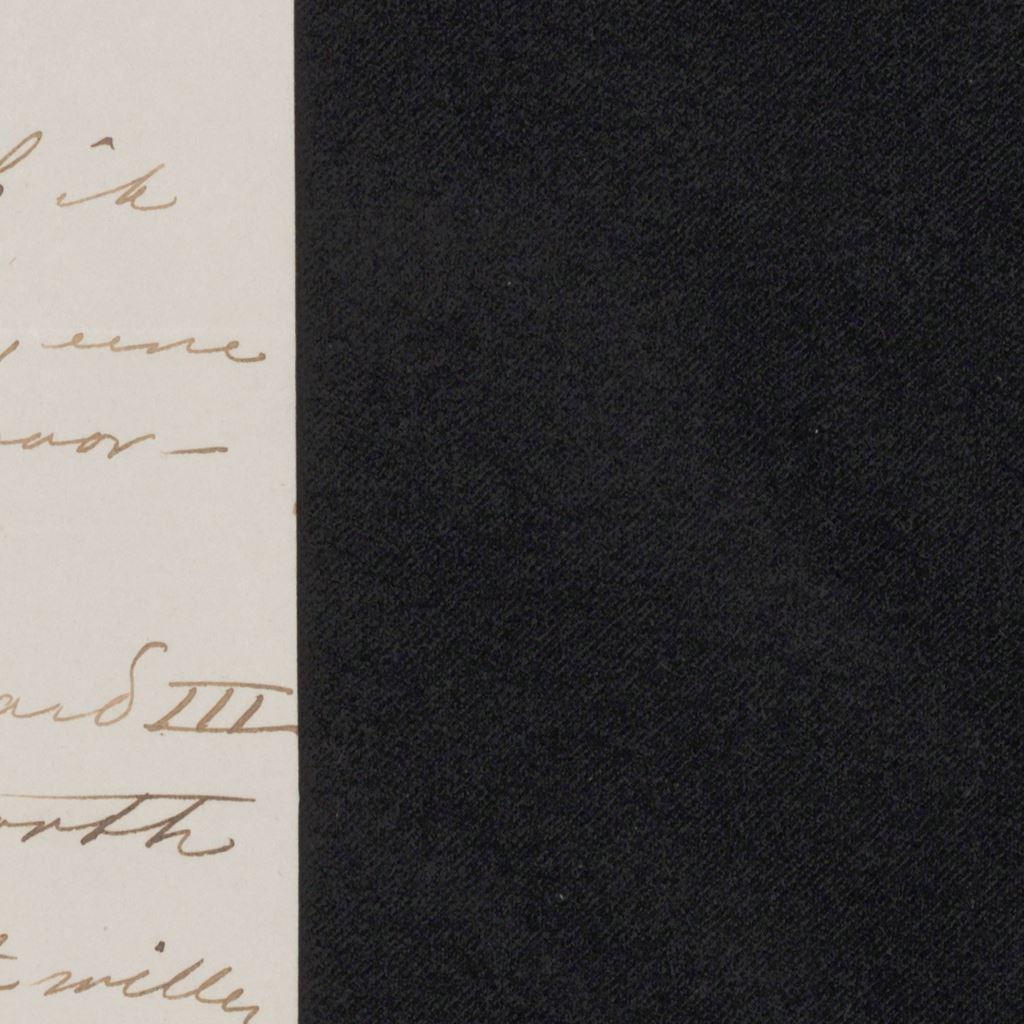 ik
eene
voor-
aard III
orth
t willen